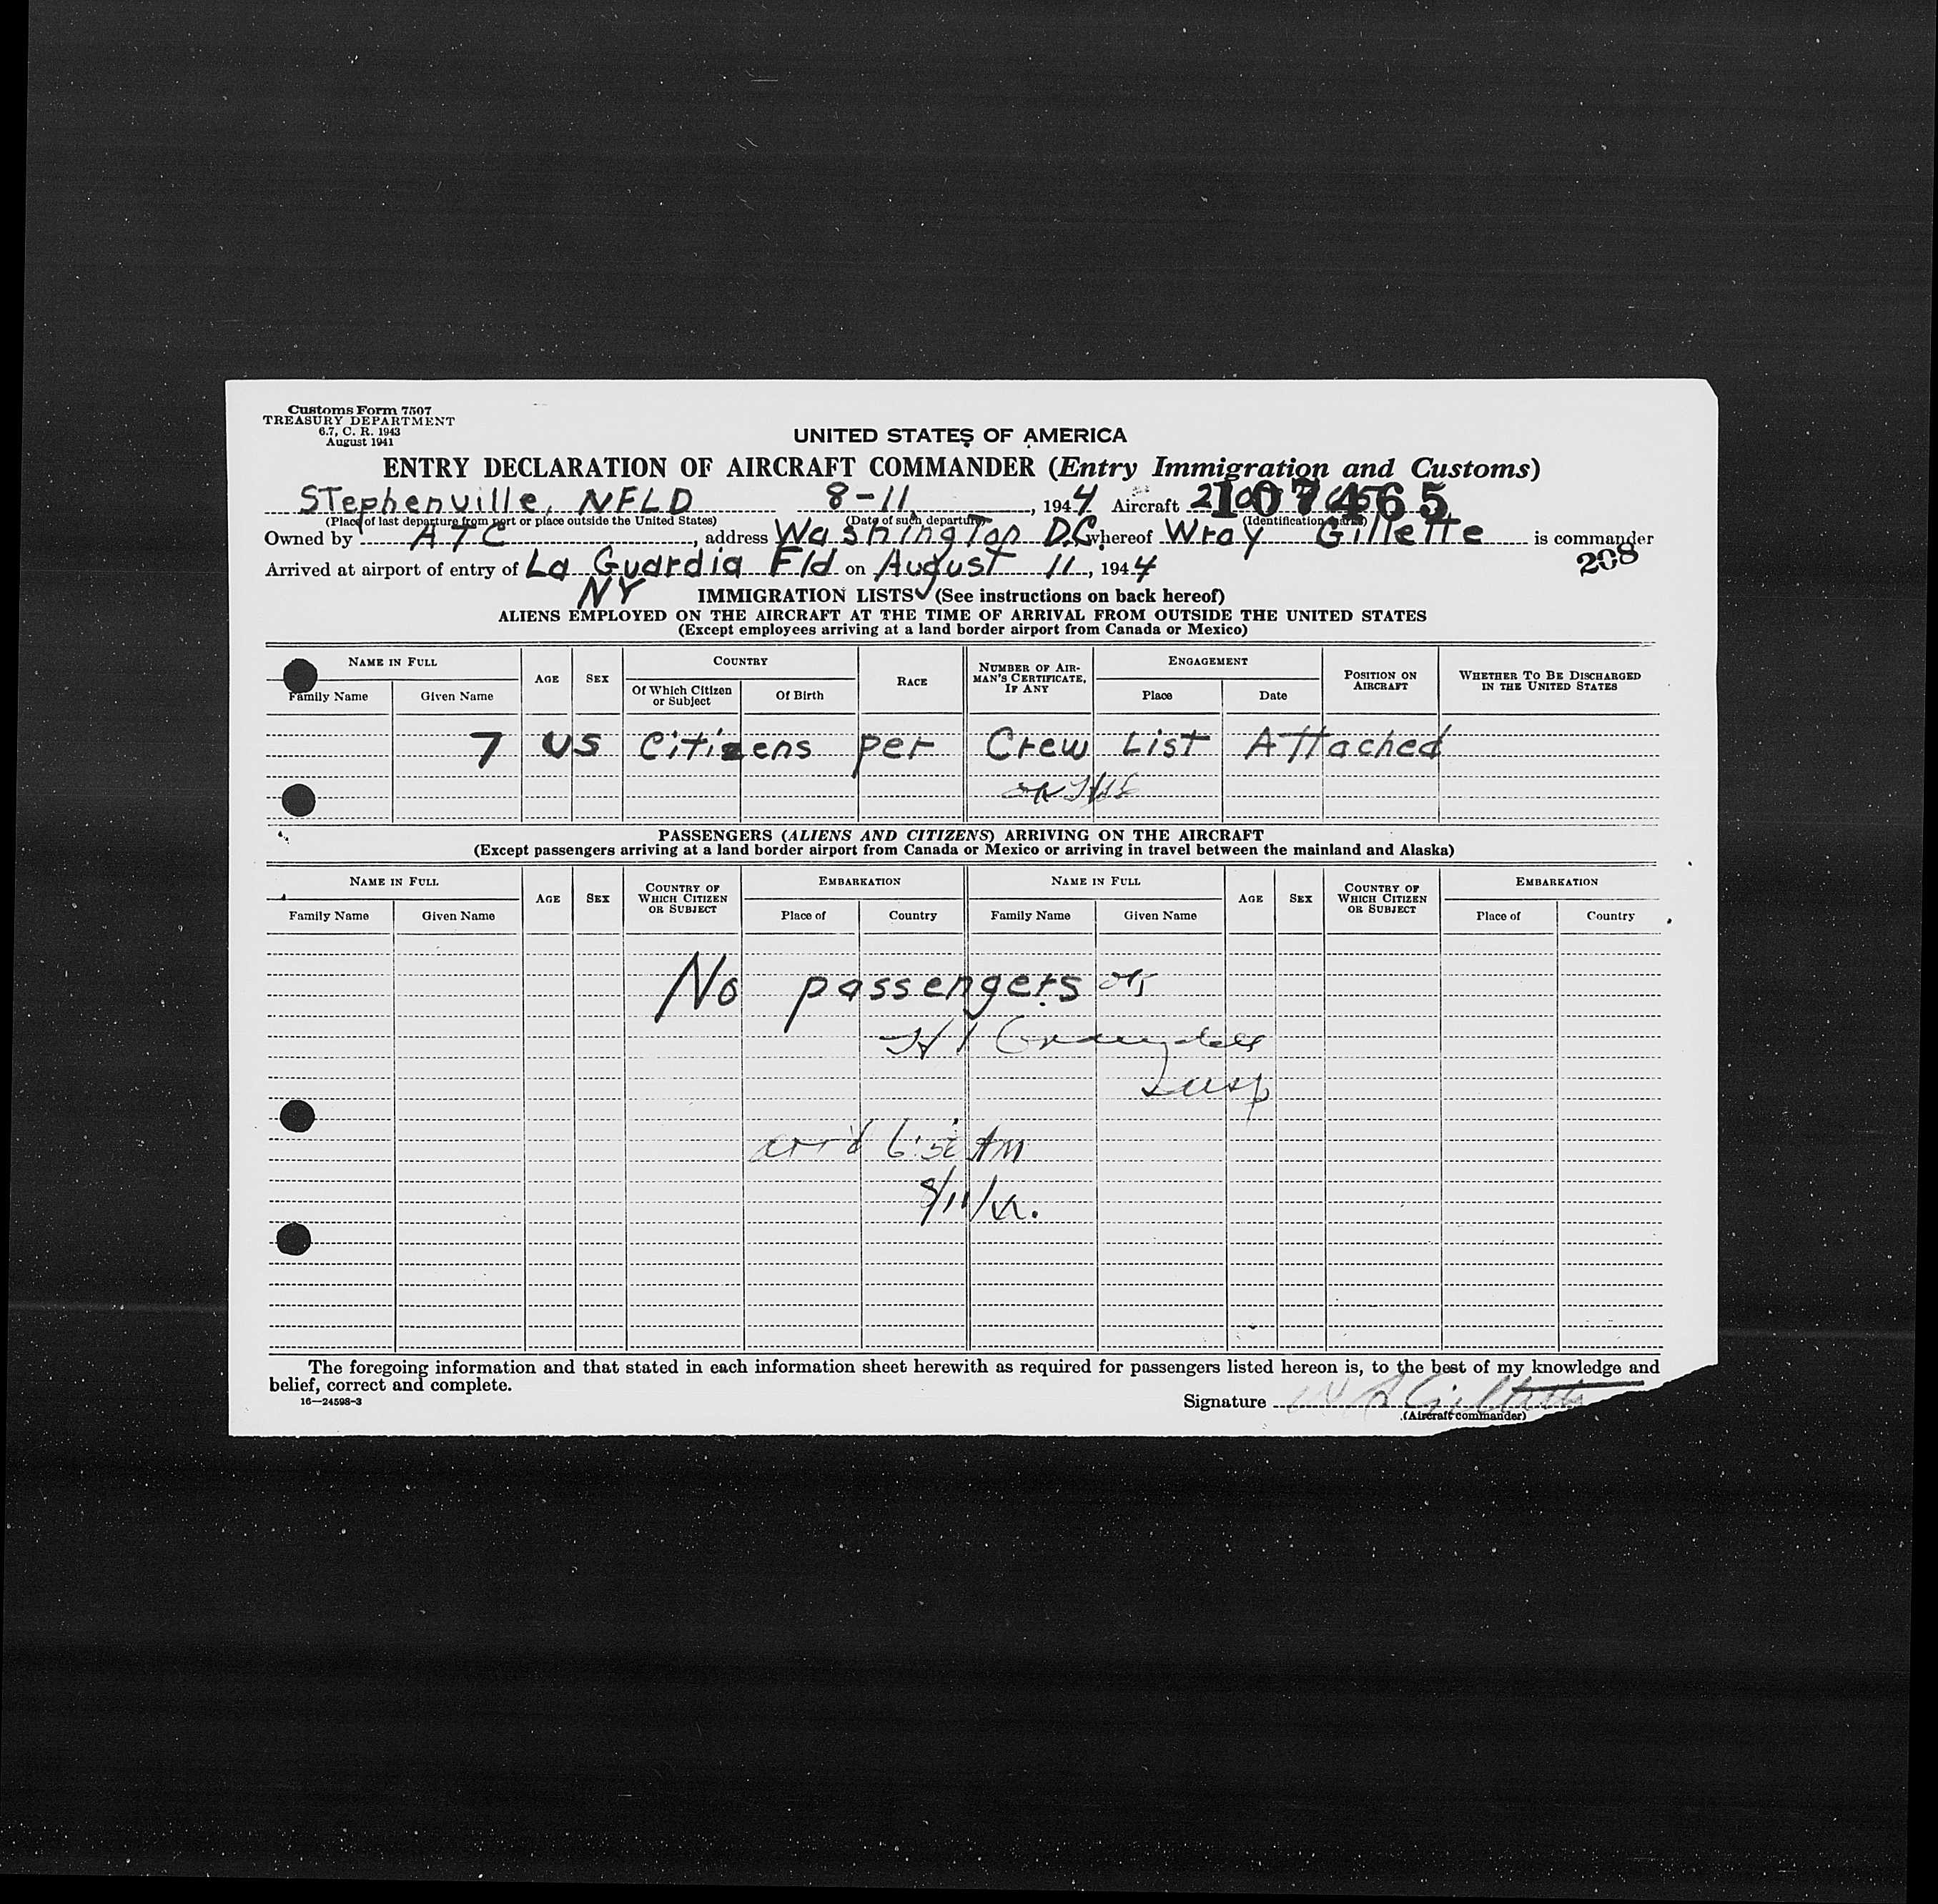 Customs Form 7507
TREASURY DEPARTMENT
6.7, C. R. 1943
August 1941
UNITED STATES OF AMERICA
ENTRY DECLARATION OF AIRCRAFT COMMANDER (Entry Immigration and Customs)
Stephenville, NFLD 8-11, 1944 Aircraft 107465
(Place of last departure from port or place outside the United States) (Date of such departure) (Identification marks)
Owned by ATC, address Washington D.C. whereof Wray Gillette is commander
208
Arrived at airport of entry of La Guardia Fld on August 11, 1944
NY
IMMIGRATION LISTS (See instructions on back hereof)
ALIENS EMPLOYED ON THE AIRCRAFT AT THE TIME OF ARRIVAL FROM OUTSIDE THE UNITED STATES
(Except employees arriving at a land border airport from Canada or Mexico)
NAME IN FULL AGE SEX COUNTRY RACE NUMBER OF AIRMAN'S CERTIFICATE, IF ANY ENGAGEMENT POSITION ON AIRCRAFT WHETHER TO BE DISCHARGED IN THE UNITED STATES
Family Name Given Name Of Which Citizen or Subject Of Birth Place Date
7 US Citizens per Crew List Attached
PASSENGERS (ALIENS AND CITIZENS) ARRIVING ON THE AIRCRAFT
(Except passengers arriving at a land border airport from Canada or Mexico or arriving in travel between the mainland and Alaska)
NAME IN FULL AGE SEX COUNTRY OF WHICH CITIZEN OR SUBJECT EMBARKATION NAME IN FULL AGE SEX COUNTRY OF WHICH CITIZEN OR SUBJECT EMBARKATION
Family Name Given Name Place of Country Family Name Given Name Place of Country
No passengers ok
Insp
arr'd AM
The foregoing information and that stated in each information sheet herewith as required for passengers listed hereon is, to the best of my knowledge and
belief, correct and complete.
16—24598-3
Signature W R Gillette
(Aircraft commander)